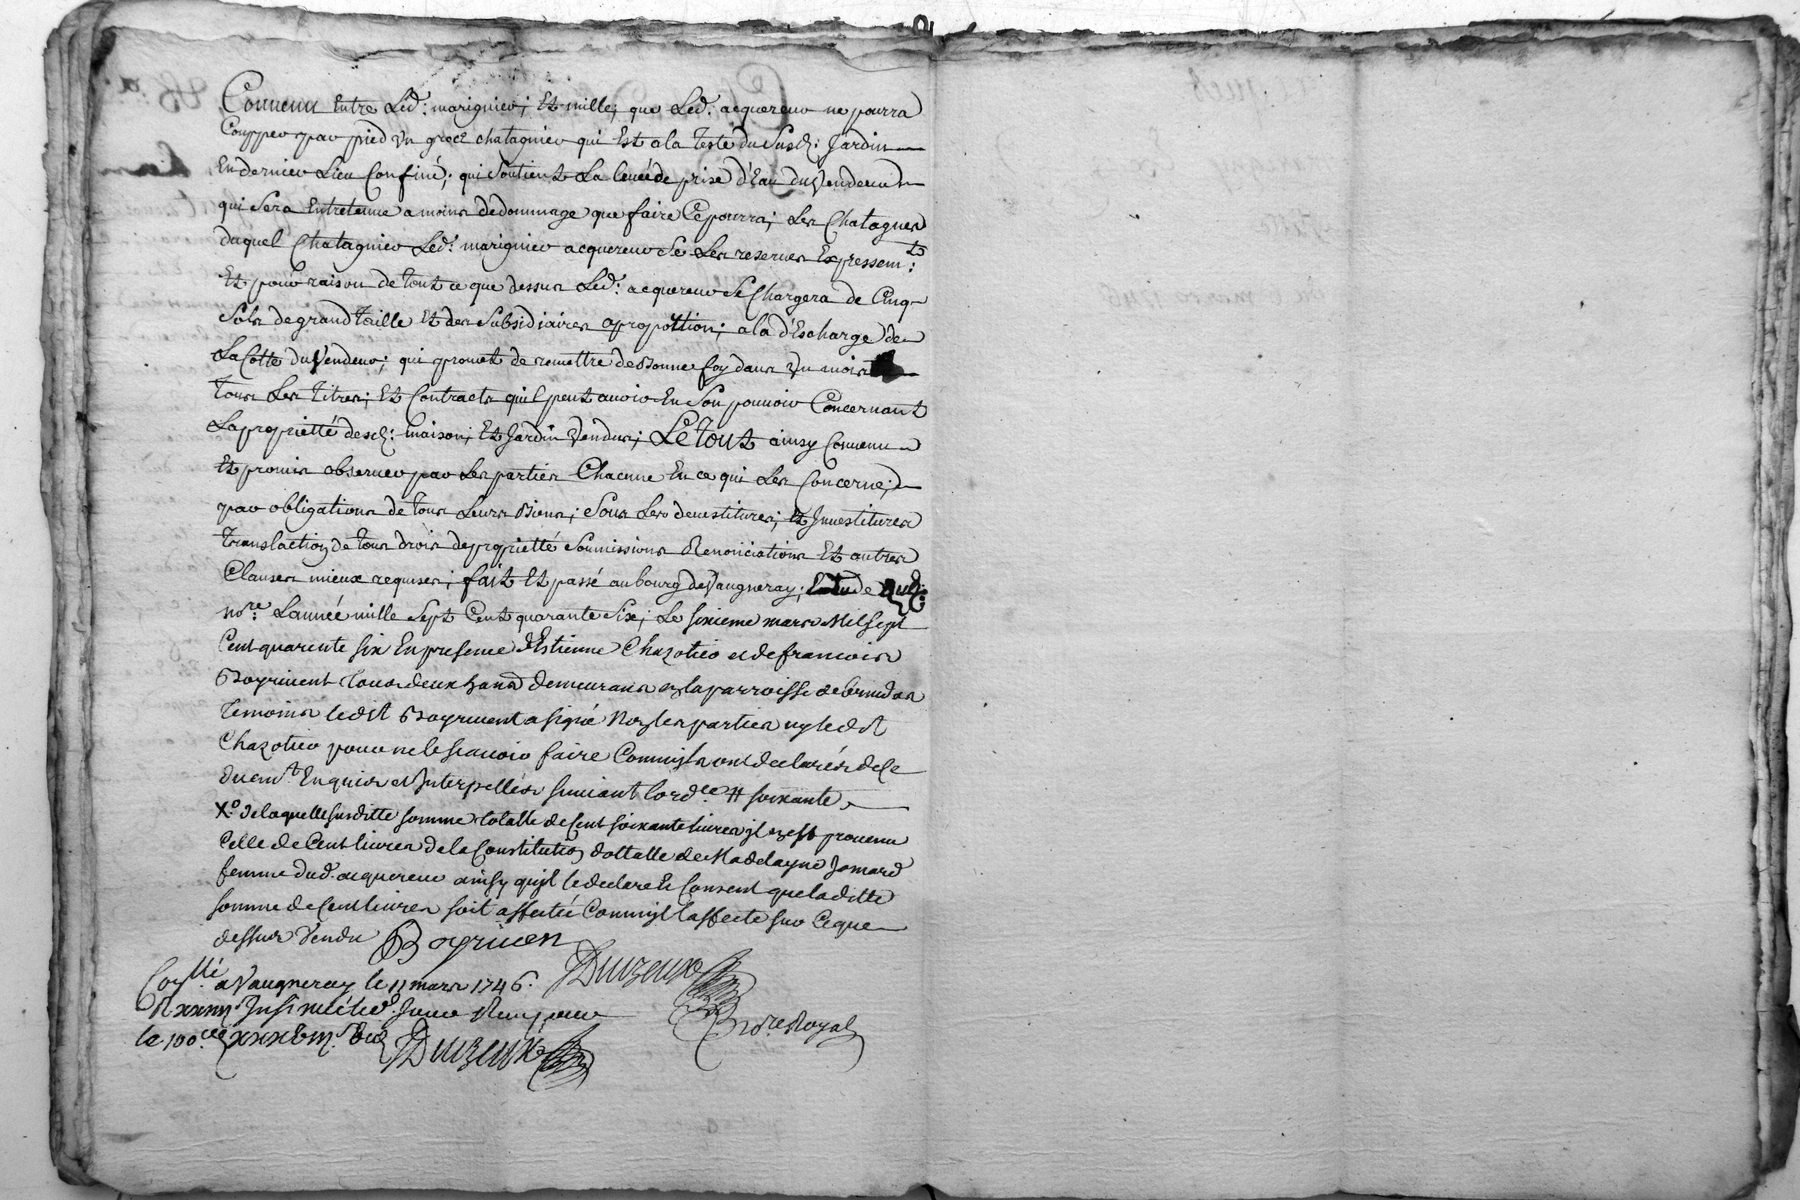 Convenu Entre Led: marignier; Et mille; que Led: acquereur ne pourra
Coupper par pied Un gros chatagnier qui Est a la Teste du Susd: Jardin
En dernier Lieu Confiné; qui Soutient La levée de prise d'Eau du Vendeur
qui Sera Entretenue a moins de dommage que faire Ce pourra; Les Chatagnes
duquel Chatagnier Led: marignier acquereur Se Les reserves Expressemt:
Et pour raison de Tout ce que dessus Led: acquereur Se Chargera de Cinq
Sols de grand Taille Et des Subsidiaires a proportion; a la d'Escharge de
La Cotte du Vendeur; qui promet de remettre de Bonne foy dans Un mois
Tous Les Titres; Et Contracts qu'il peut avoir En Son pouvoir Concernant
La proprietté desd: maison; Et Jardin Vendus; Le Tout ainsy Convenu
Et promis observer par Les parties Chacune En ce qui Les Concerne;
par obligations de Tous Leurs Biens; Sous Les devestitures; Et Investitures
Translaction de Tous drois de proprietté Soumissions Renonciations Et autres
Clauses mieux requises; fait Et passé au bourg de Vaugneray; Etude dud:
nore: L'année mille Sept Cent quarante Six; Le sixieme mars Mil sept
Cent quarente six En presence d'Estienne Chazotier et de francois
Boyrivent tous deux demeurans en la parroisse de
Temoins ledit Boyrivent a signé Non les parties ny ledit
Chazotier pour ne le scavoir faire Comm'ils ont declarés de Ce
duemt Enquis et Interpellés suivant lordce # soixante
Xo de laquelle susditte somme totalle de Cent soixante livres il en est provenu
Celle de Cent livres de la Constitution dottalle de Madelayne Jomard
femme dud. acquereur ainsy qu'il le declare Et Consent que laditte
somme de Cent livres soit affectée Comm'il l'affecte sur Ce que
dessus Vendu Boyriven
a Vaugneray le 11 mars 1746. Duizeux
Insinué led. Jour
le 100e Duizeux nore Royal